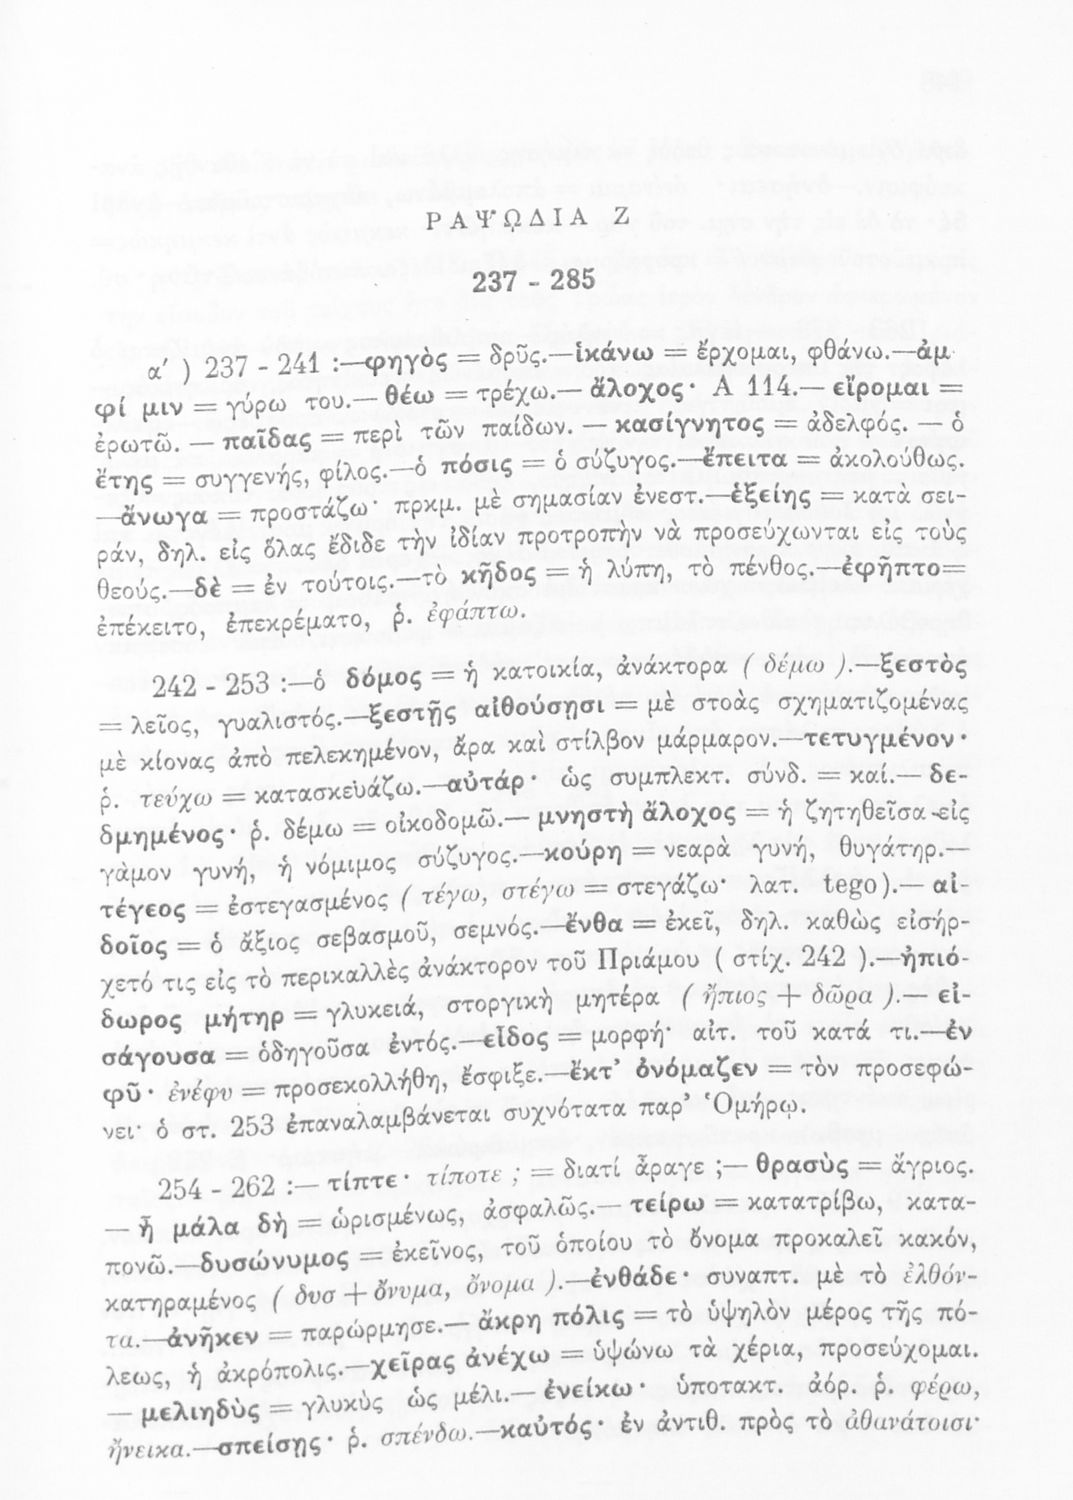 ΡΑΨΩΔΙΑ Ζ
237 - 285
α΄ ) 237 - 241 :—φηγὸς = δρῦς.—ἱκάνω = ἔρχομαι, φθάνω.—ἀμ-
φί μιν = γύρω του.— θέω = τρέχω.— ἄλοχος· Α 114.— εἴρομαι =
ἐρωτῶ. — παῖδας = περὶ τῶν παίδων. — κασίγνητος = ἀδελφός. — ὁ
ἔτης = συγγενής, φίλος.—ὁ πόσις = ὁ σύζυγος.—ἔπειτα = ἀκολούθως.
—ἄνωγα = προστάζω· πρκμ. μὲ σημασίαν ἐνεστ.—ἑξείης = κατὰ σει-
ράν, δηλ. εἰς ὅλας ἔδιδε τὴν ἰδίαν προτροπὴν νὰ προσεύχωνται εἰς τοὺς
θεούς.—δὲ = ἐν τούτοις.—τὸ κῆδος = ἡ λύπη, τὸ πένθος.—ἐφῆπτο=
ἐπέκειτο, ἐπεκρέματο, ῥ. ἐφάπτω.
242 - 253 :—ὁ δόμος = ἡ κατοικία, ἀνάκτορα ( δέμω ).—ξεστὸς
= λεῖος, γυαλιστός.—ξεστῇς αἰθούσῃσι = μὲ στοὰς σχηματιζομένας
μὲ κίονας ἀπὸ πελεκημένον, ἄρα καὶ στίλβον μάρμαρον.—τετυγμένον·
ῥ. τεύχω = κατασκευάζω.—αὐτάρ· ὡς συμπλεκτ. σύνδ. = καί.— δε-
δμημένος· ῥ. δέμω = οἰκοδομῶ.— μνηστὴ ἄλοχος = ἡ ζητηθεῖσα εἰς
γάμον γυνή, ἡ νόμιμος σύζυγος.—κούρη = νεαρὰ γυνή, θυγάτηρ.—
τέγεος = ἐστεγασμένος ( τέγω, στέγω = στεγάζω· λατ. tego).— αἰ-
δοῖος = ὁ ἄξιος σεβασμοῦ, σεμνός.—ἔνθα = ἐκεῖ, δηλ. καθὼς εἰσήρ-
χετό τις εἰς τὸ περικαλλὲς ἀνάκτορον τοῦ Πριάμου ( στίχ. 242 ).—ἠπιό-
δωρος μήτηρ = γλυκειά, στοργικὴ μητέρα ( ἤπιος + δῶρα ).— εἰ-
σάγουσα = ὁδηγοῦσα ἐντός.—εἶδος = μορφή· αἰτ. τοῦ κατά τι.—ἐν
φῦ· ἐνέφυ = προσεκολλήθη, ἔσφιξε.—ἔκτ’ ὀνόμαζεν = τὸν προσεφώ-
νει· ὁ στ. 253 ἐπαναλαμβάνεται συχνότατα παρ’ Ὁμήρῳ.
254 - 262 :— τίπτε· τίποτε ; = διατί ἆραγε ;— θρασὺς = ἄγριος.
— ἦ μάλα δὴ = ὡρισμένως, ἀσφαλῶς.— τείρω = κατατρίβω, κατα-
πονῶ.—δυσώνυμος = ἐκεῖνος, τοῦ ὁποίου τὸ ὄνομα προκαλεῖ κακόν,
κατηραμένος ( δυσ + ὄνυμα, ὄνομα ).—ἐνθάδε· συναπτ. μὲ τὸ ἐλθόν-
τα.—ἀνῆκεν = παρώρμησε.— ἄκρη πόλις = τὸ ὑψηλὸν μέρος τῆς πό-
λεως, ἡ ἀκρόπολις.—χεῖρας ἀνέχω = ὑψώνω τὰ χέρια, προσεύχομαι.
— μελιηδὺς = γλυκὺς ὡς μέλι.— ἐνείκω· ὑποτακτ. ἀόρ. ῥ. φέρω,
ἤνεικα.—σπείσῃς· ῥ. σπένδω.—καὐτός· ἐν ἀντιθ. πρὸς τὸ ἀθανάτοισι·